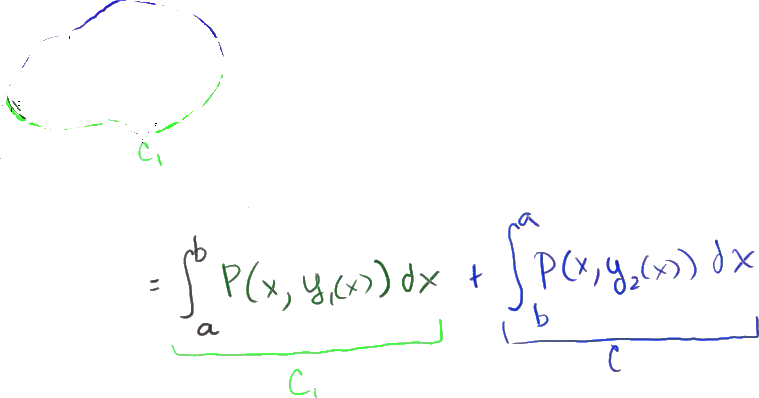 C₁
= ∫ₐᵇ P(x, y₁(x)) dx + ∫_b^a P(x, y₂(x)) dx
C₁ C